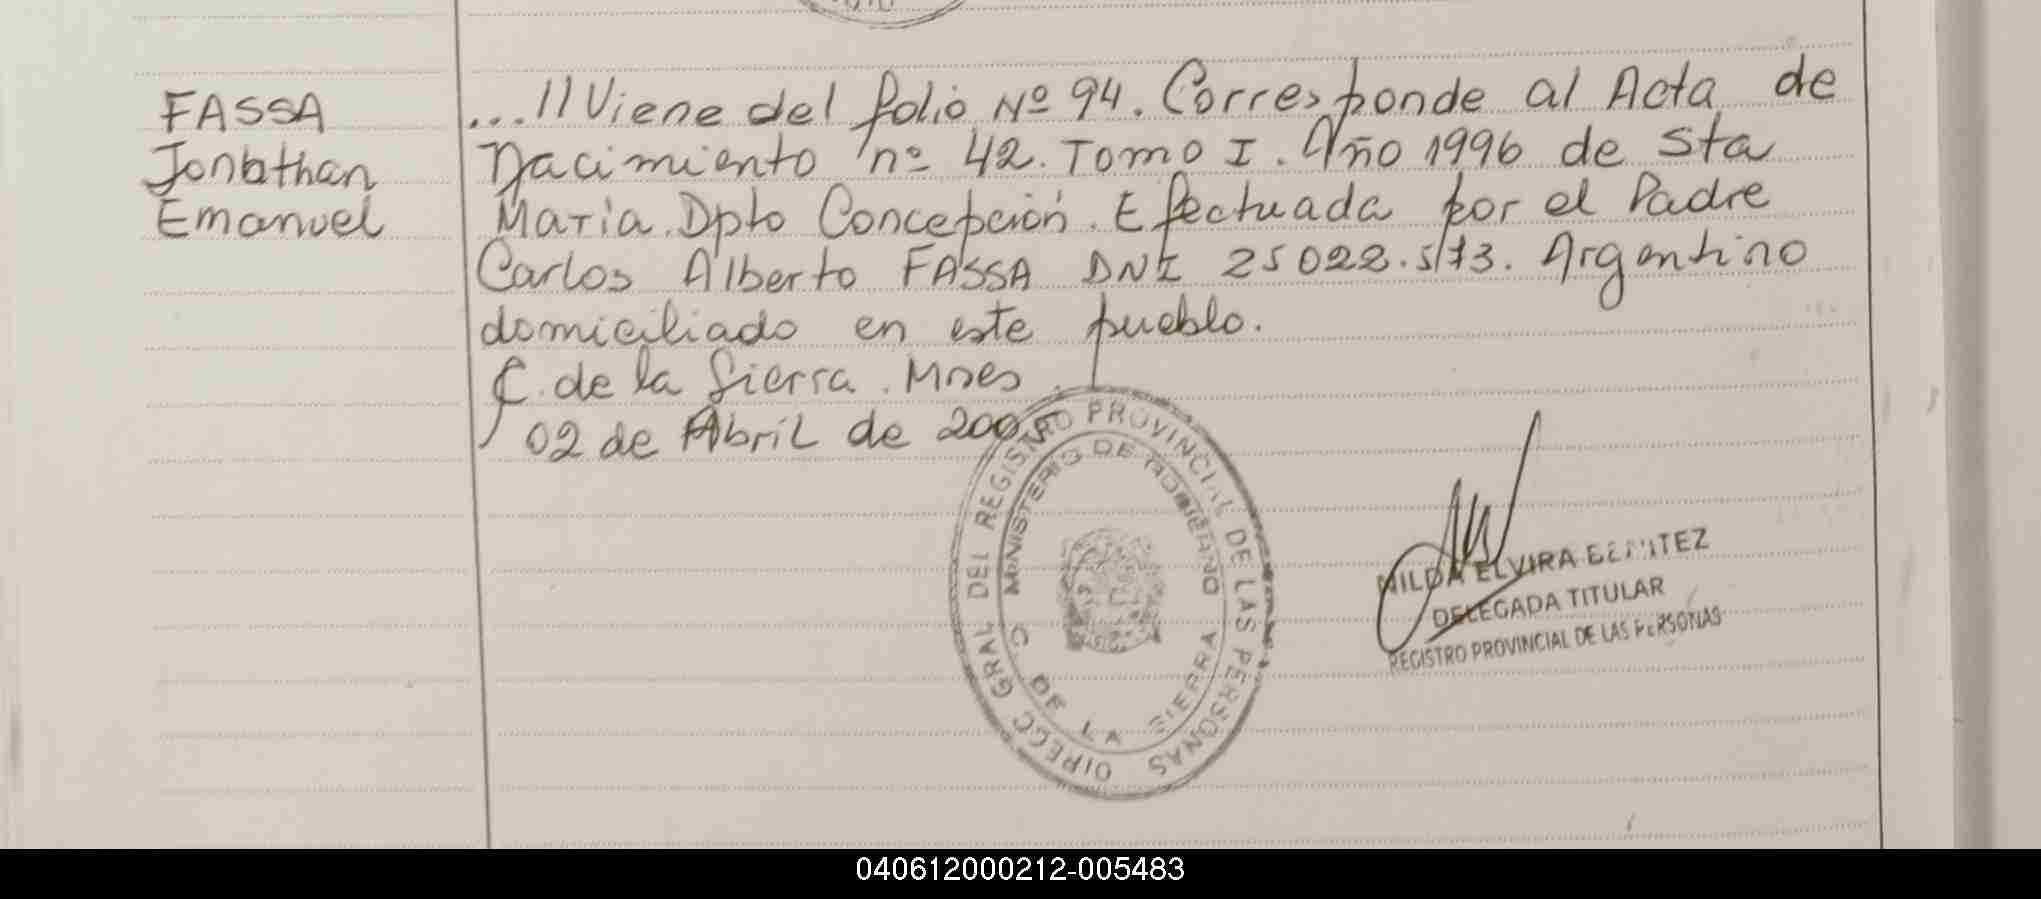 FASSA
Jonathan
Emanuel
...//Viene del folio Nº 94. Corresponde al Acta de
Nacimiento nº 42. Tomo I. Año 1996 de Sta
Maria. Dpto Concepción. Efectuada por el Padre
Carlos Alberto FASSA DNI 25022.573. Argentino
domiciliado en este pueblo.
C. de la Sierra. Mnes
02 de Abril de 2005
DIRECC GRAL DEL REGISTRO PROVINCIAL DE LAS PERSONAS
MINISTERIO DE GOBIERNO
C DE LA SIERRA
NILDA ELVIRA BENITEZ
DELEGADA TITULAR
REGISTRO PROVINCIAL DE LAS PERSONAS
040612000212-005483